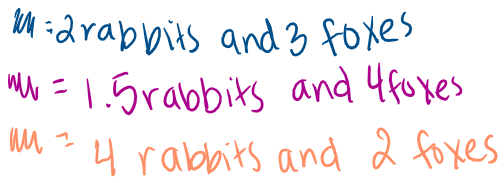 = 2 rabbits and 3 foxes
= 1.5 rabbits and 4 foxes
= 4 rabbits and 2 foxes